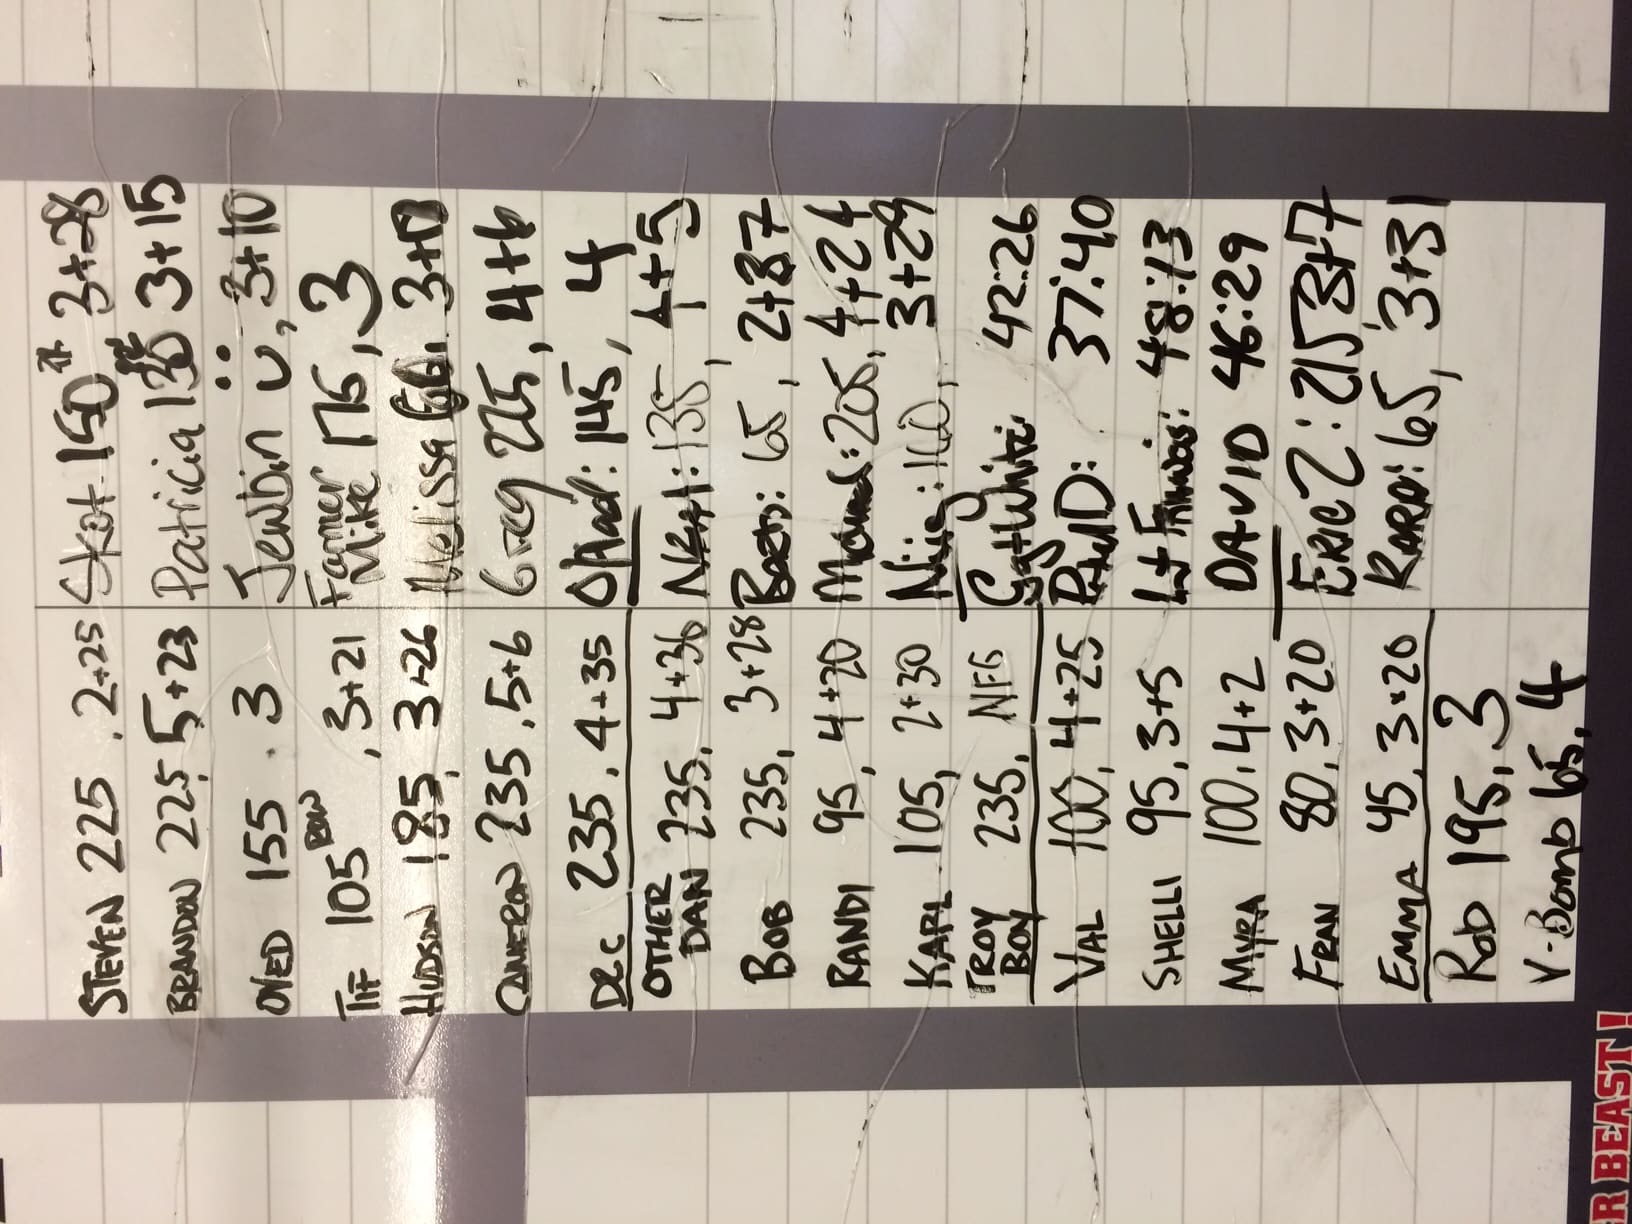 STEVEN 225, 2+25
BRANDON 225, 5+23
OVED 155, 3
TIF 105 ROW, 3+21
HUDSON 185, 3+26
CAMERON 235, 5+6
DEC 235, 4+35
OTHER
DAN 235, 4+36
BOB 235, 3+28
RANDI 95, 4+20
KARL 105, 2+30
TROY
BOY 235, NFG
VAL 100, 4+25
SHELLI 95, 3+5
MYRA 100, 4+2
FRAN 80, 3+20
EMMA 45, 3+20
ROD 195, 3
V-Bomb 65, 4
150 # 3+28
Patricia 3+15
3+10
Farmer
Mike 175, 3
Melissa 3+
Greg 225, 4+6
145, 4
135, 4+5
65, 2+37
205, 4+24
160, 3+29
42:26
37:40
48:13
DAVID 46:29
ERIC Z: 215 3+7
65, 3+31
R BEAST!